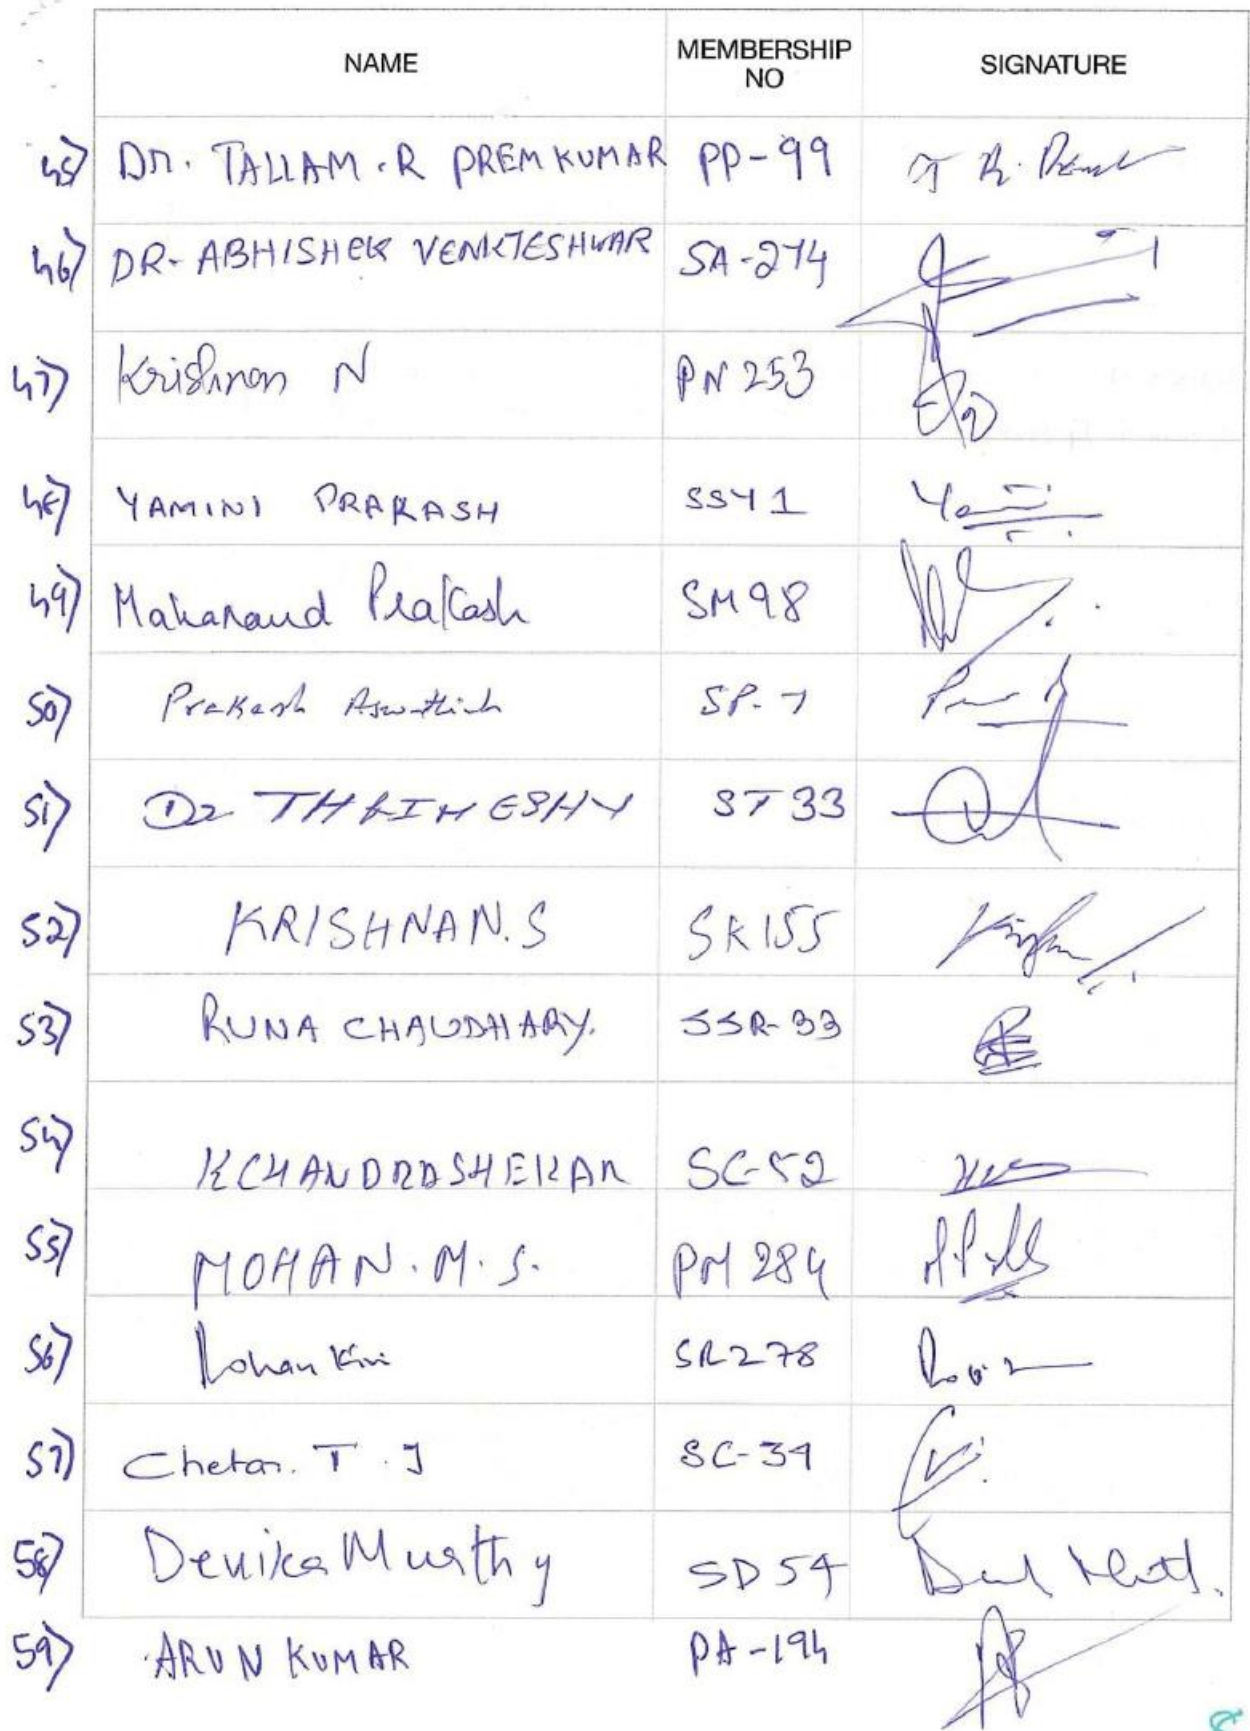 NAME MEMBERSHIP NO SIGNATURE
45) DR. TALLAM .R PREMKUMAR PP-99 T R. Prem
46) DR- ABHISHEK VENKTESHWAR SA-274
47) Krishnan N PN 253
48) YAMINI PRAKASH SSY1
49) Makarand Prakash SM98
50) Prakash Aswathiah SP-7
51) Dr ST33
52) KRISHNAN.S SK155
53) RUNA CHAUDHARY. SSR-33
54) KCHANDRASHEKAR SC-52
55) MOHAN.M.S. PM 284
56) Rohan Kini SR278
57) Chetan. T.J SC-34
58) Devika Murthy SD54
59) ARUN KUMAR PA-194